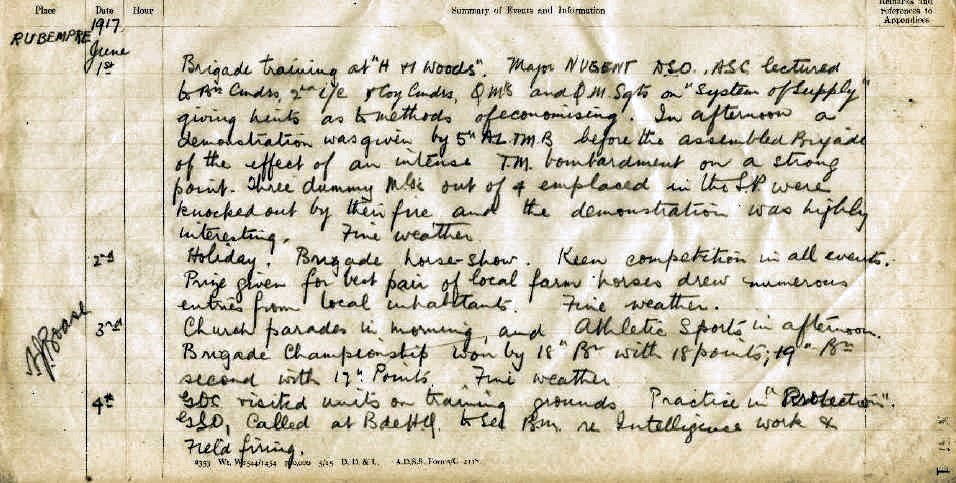 Place Date Hour Summary of Events and Information Remarks and references to Appendices
RUBEMPRE 1917
June
1st Brigade training at "H M Woods". Major NUGENT DSO., ASC lectured
to Bn Cmdrs, 2nd i/c & Coy Cmdrs, QMs and Q.M. Sgts on "System of Supply"
giving hints as to methods of economising. In afternoon a
demonstration was given by 5th T.M.B before the assembled Brigade
of the effect of an intense T.M. bombardment on a strong
point. Three dummy M.Gs out of 4 emplaced in the S.P were
knocked out by their fire and the demonstration was highly
interesting. Fine weather
2nd Holiday. Brigade horse-show. Keen competition in all events.
Prize given for best pair of local farm horses drew numerous
entries from local inhabitants. Fine weather.
3rd Church parades in morning, and Athletic Sports in afternoon.
Brigade Championship won by 18th Bn with 18 points; 19th Bn
second with 17 Points. Fine weather
4th GOC visited units on training grounds Practice in "Protection".
GSO, Called at Bde HQ. to see B.M. re Intelligence work &
Field firing.
Boase
2353 Wt. W2544/1454 700,000 5/15 D. D. & L. A.D.S.S. Forms/C. 2118.